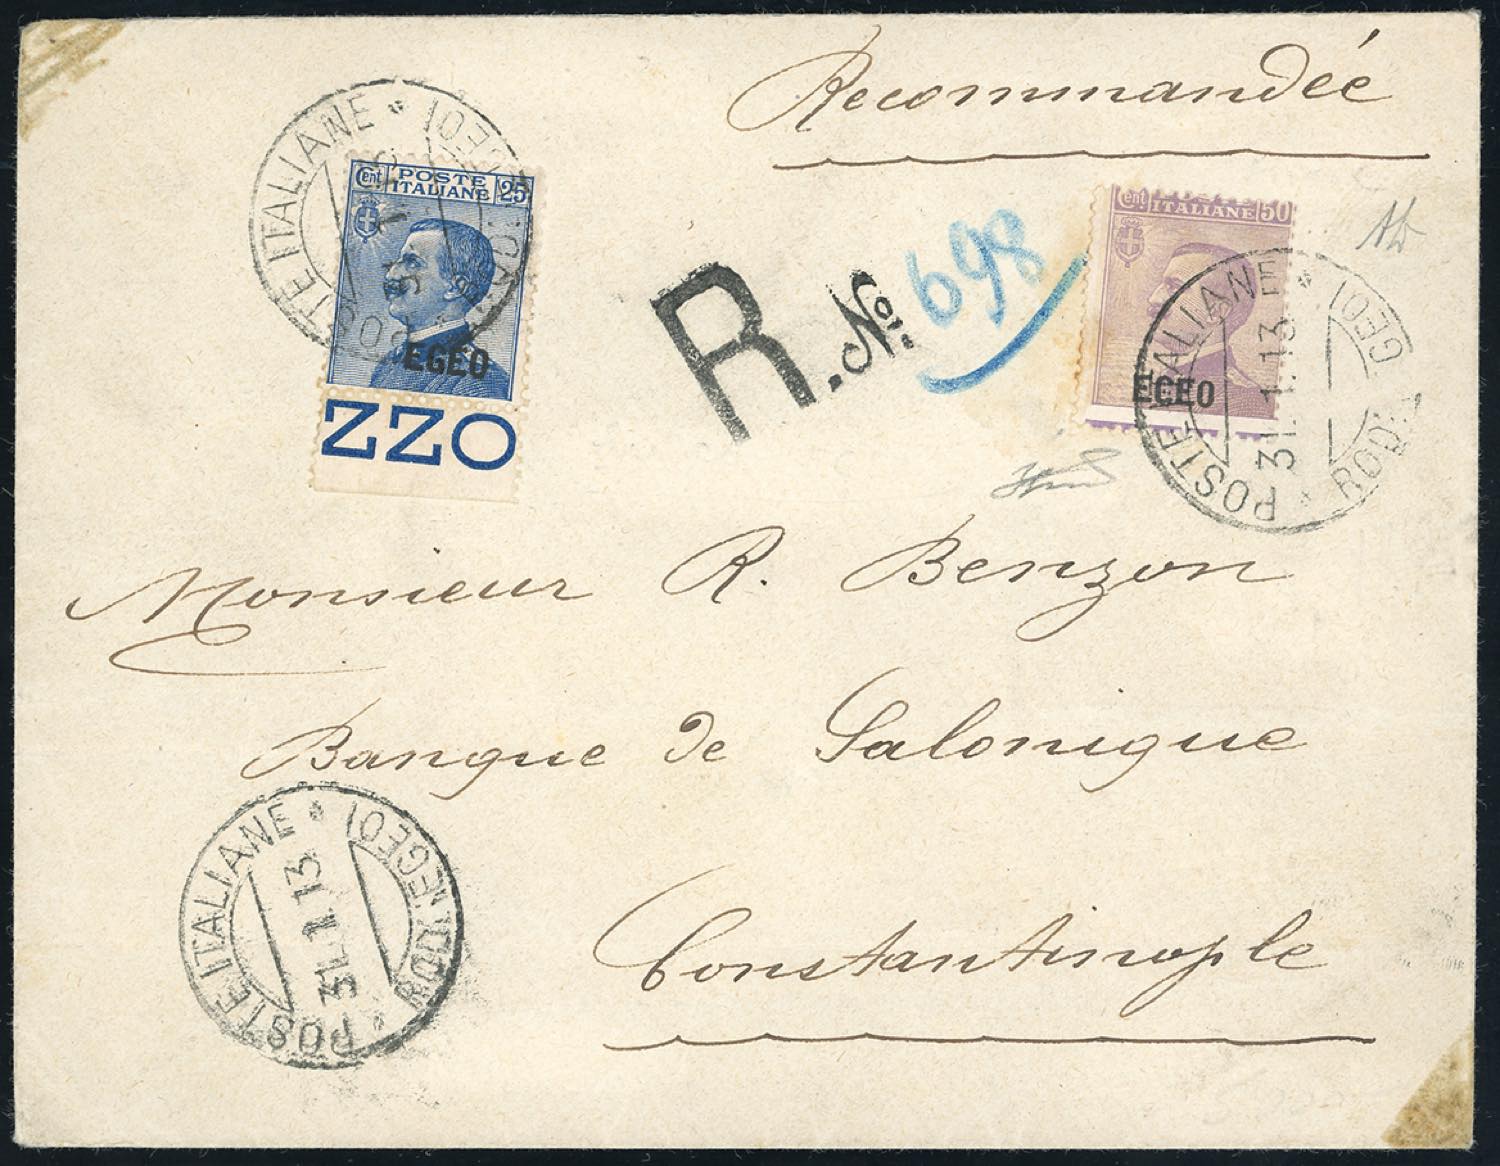 Recommandée
Cent POSTE ITALIANE 25
EGEO
ZZO
R. No: 698
Cent ITALIANE 50
EGEO
POSTE ITALIANE * RODI (EGEO)
31.1.13
Monsieur R. Benzon
Banque de Salonique
Constantinople
POSTE ITALIANE * RODI (EGEO) *
31.1.13